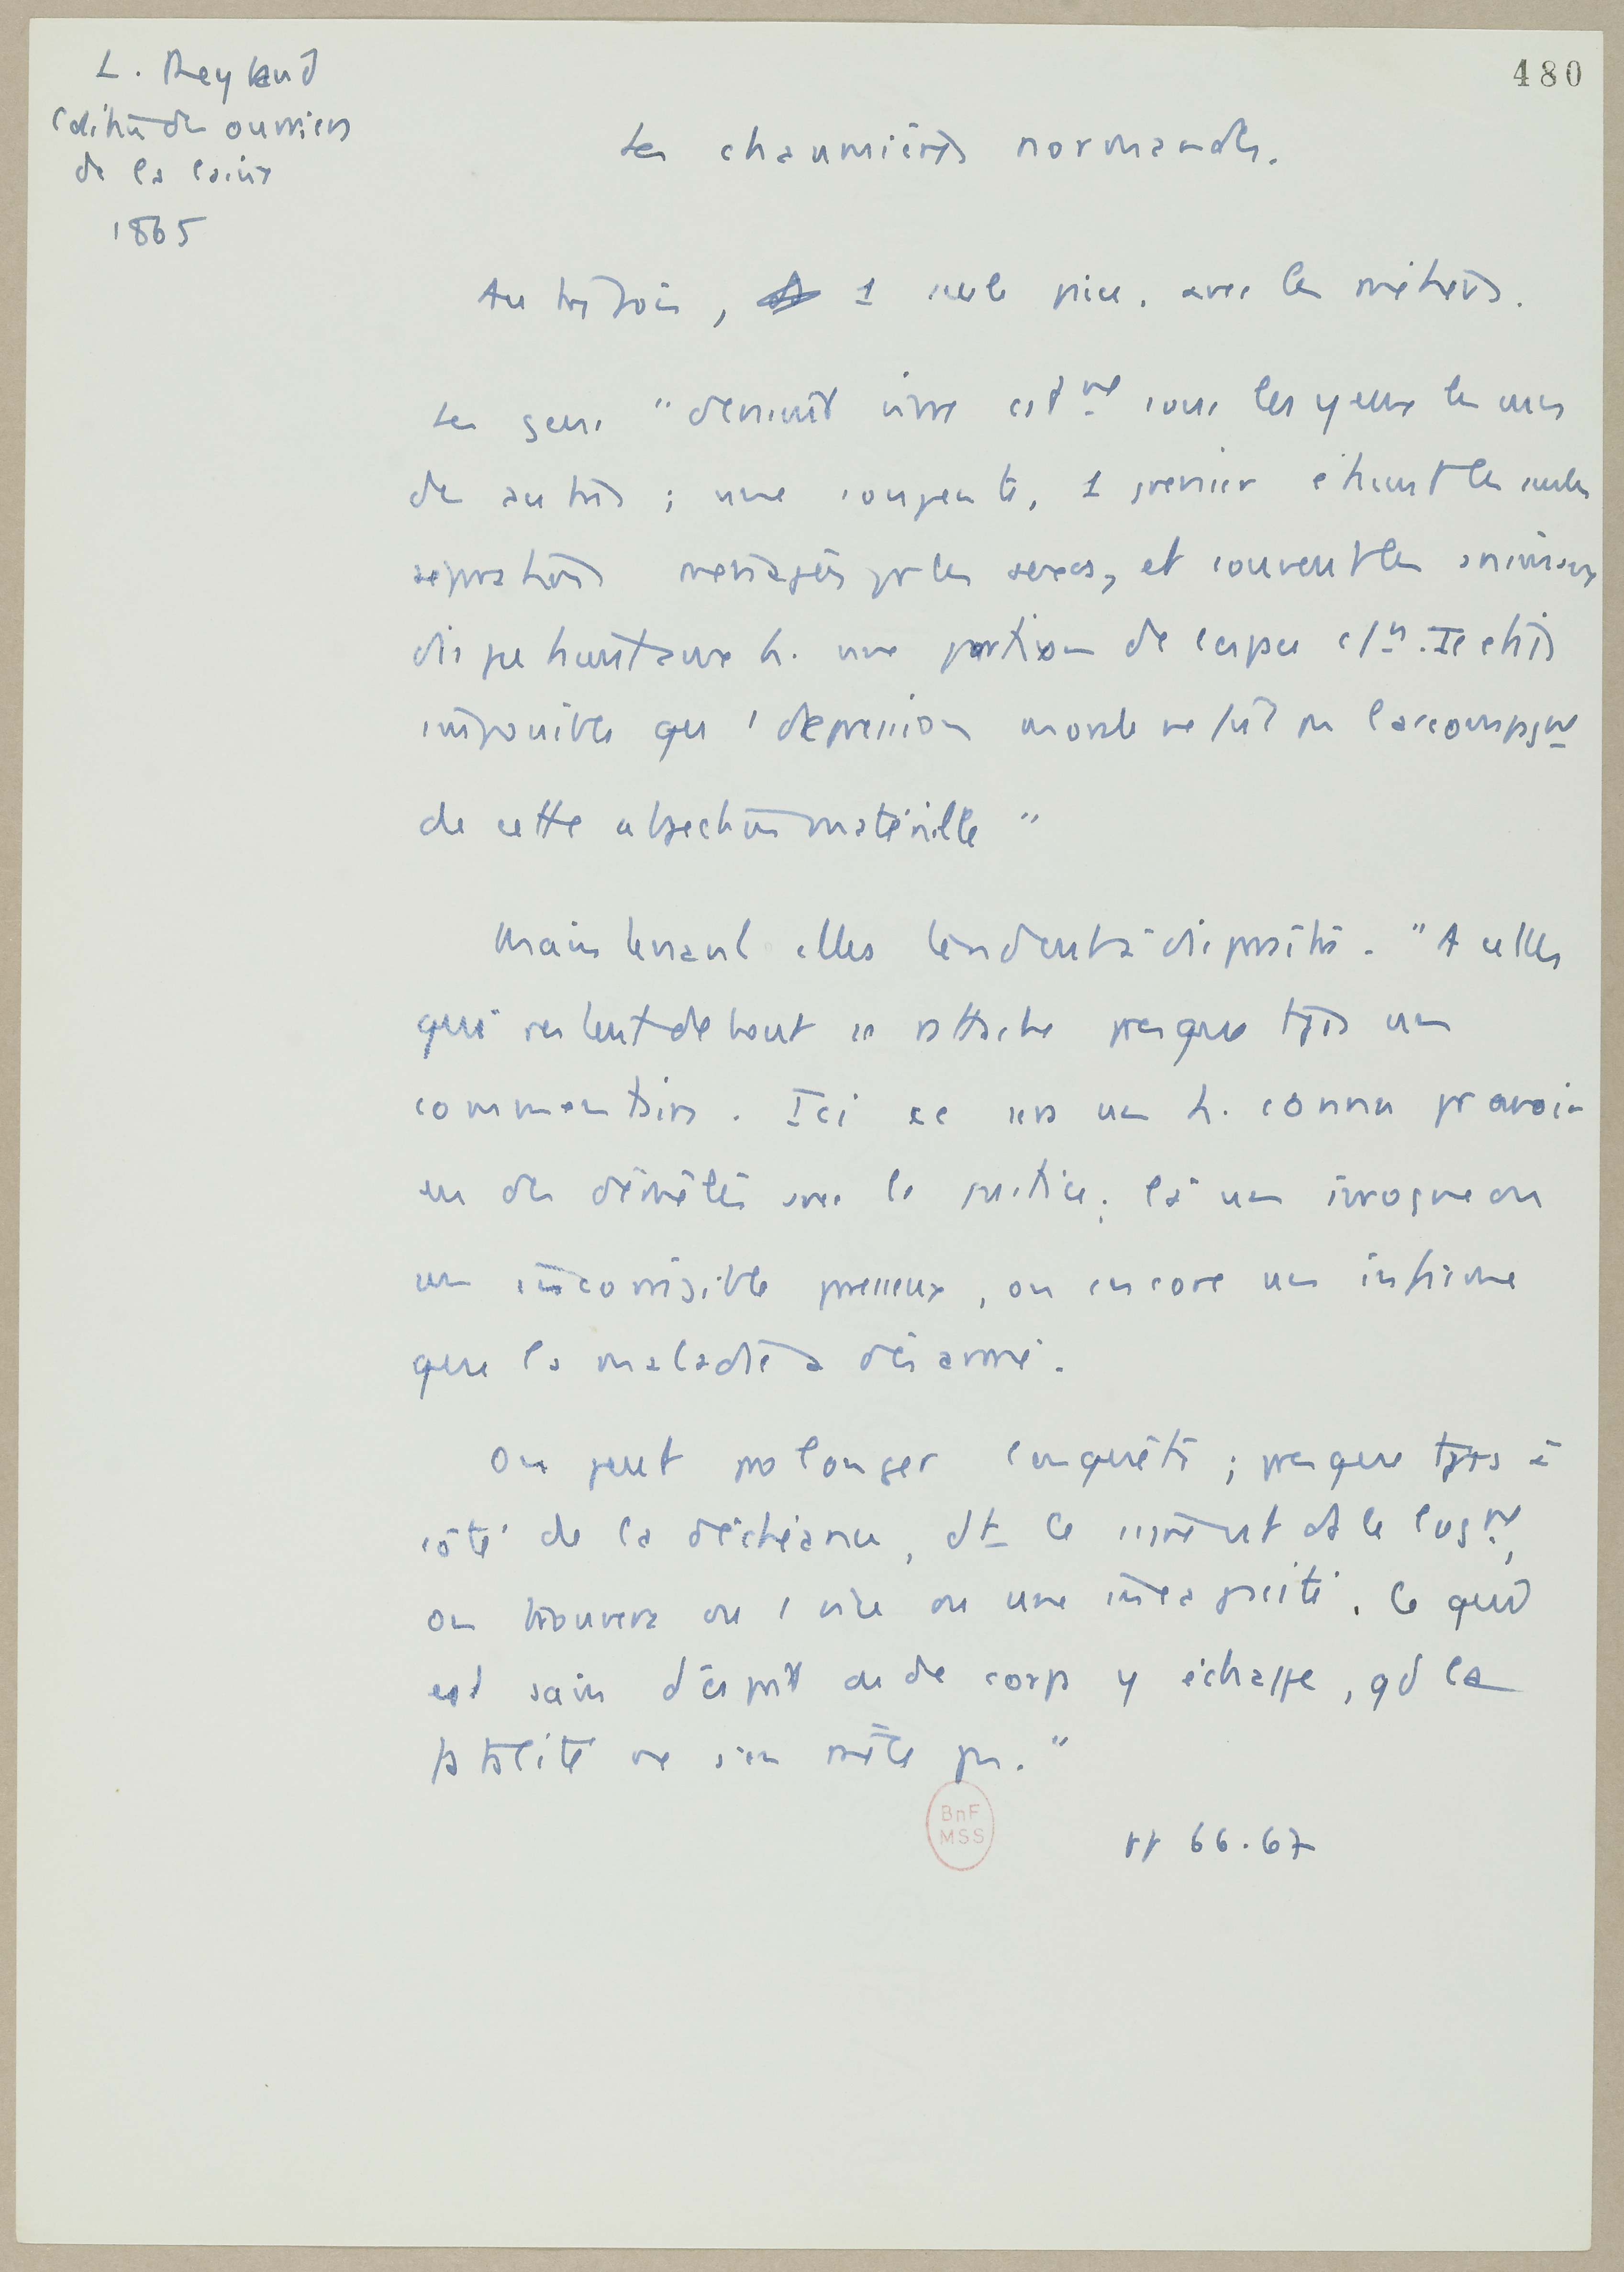 L. Reybaud
Condition des ouvriers
de la laine
1865
480
Les chaumières normandes.
Autrefois, 1 seule pièce. avec les métiers.
Les gens "devaient vivre cstmt sous les yeux les uns
des autres ; une soupente, 1 grenier étaient les seules
séparations ménagées pr les sexes, et souvent les animaux
disputaient aux h. une portion de l'espace c/n. Il était
impossible qu' 1 dépression morale ne fût pas l'accompagnt
de cette abjection matérielle"
Maintenant elles tendent à disparaître. "A celles
qui restent debout se rattache presque tjrs un
commentaire. Ici ce sera un h. connu pr avoir
eu des démêlés avec la justice ; là un ivrogne ou
un incorrigible paresseux, ou encore un infirme
que la maladie a désarmé.
On peut prolonger l'enquête ; presque tjrs à
côté de la déchéance, dt le signe est ds le logt,
on trouvera ou 1 vice ou une incapacité. Ce qui
est sain d'esprit ou de corps y échappe, qd la
fatalité ne s'en mêle pas."
BnF
MSS
pp 66.67